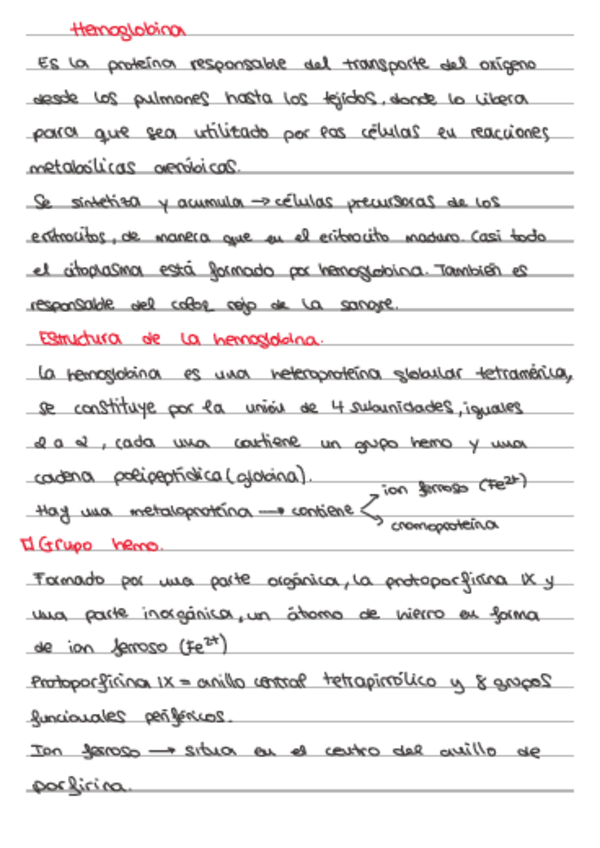 Hemoglobina
Es la proteína responsable del transporte del oxígeno
desde los pulmones hasta los tejidos, donde lo libera
para que sea utilizado por las células en reacciones
metabólicas aeróbicas.
Se sintetiza y acumula → células precursoras de los
eritrocitos, de manera que en el eritrocito maduro. Casi todo
el citoplasma está formado por hemoglobina. También es
responsable del color rojo de la sangre.
Estructura de la hemoglobina.
La hemoglobina es una heteroproteína globular tetramérica,
se constituye por la unión de 4 subunidades, iguales
2 a 2, cada una contiene un grupo hemo y una
cadena polipeptídica (globina).
ion ferroso (Fe²⁺)
Hay una metaloproteína → contiene
cromoproteína
Grupo hemo.
Formado por una parte orgánica, la protoporfirina IX y
una parte inorgánica, un átomo de hierro en forma
de ion ferroso (Fe²⁺)
Protoporfirina IX = anillo central tetrapirrólico y 8 grupos
funcionales periféricos.
Ion ferroso → situa en el centro del anillo de
porfirina.